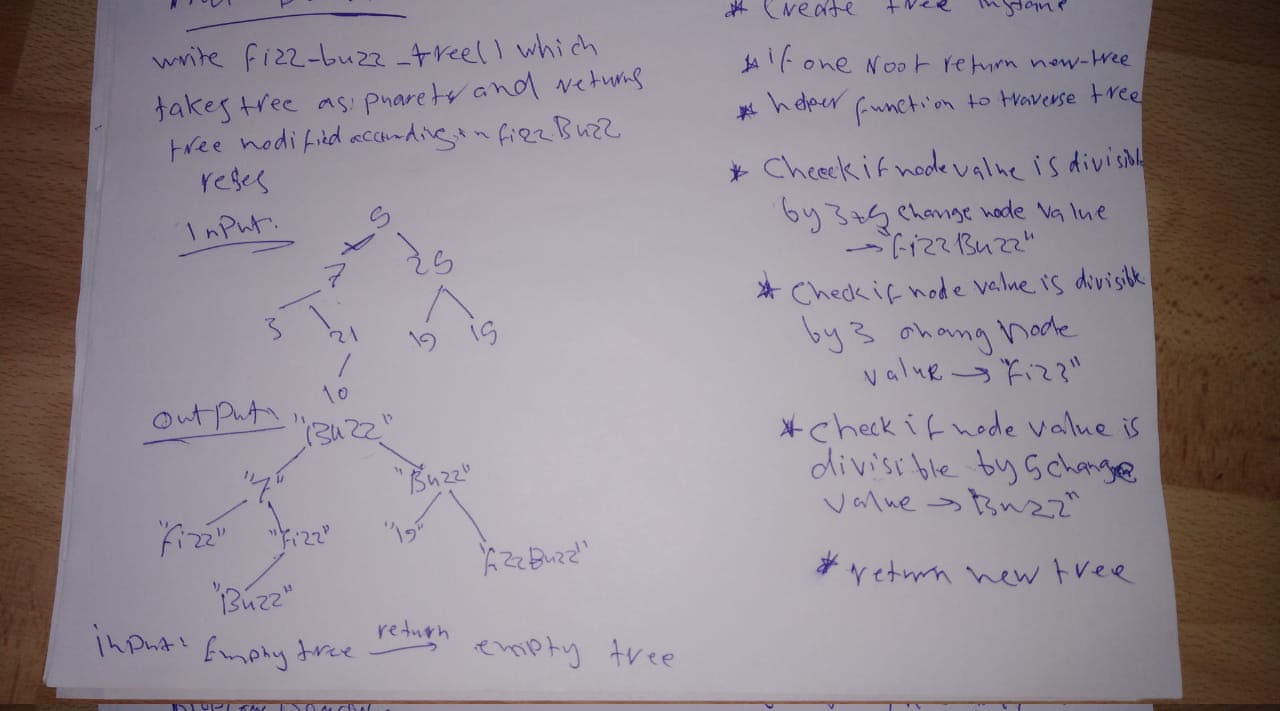 * Create tree
write fizz-buzz_tree() which
takes tree as and returns
tree modified according in fizzBuzz
Input:
5
7 25
3 21 19 15
10
output:
"Buzz"
"7" "Buzz"
"Fizz" "Fizz" "19" "FizzBuzz"
"Buzz"
input: Empty tree return → empty tree
* if one Noot return new-tree
* helper function to traverse tree
* Cheeck if node value is divisible
by 3+5 change node value
→ "FizzBuzz"
* Check if node value is divisible
by 3 chang Node
value → "Fizz"
* Check if node value is
divisible by 5 change
value → "Buzz"
* return new tree